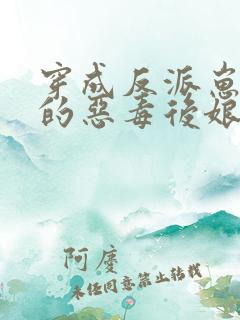 穿成反派崽
的惡毒後娘
阿廑
未经同意禁止转载